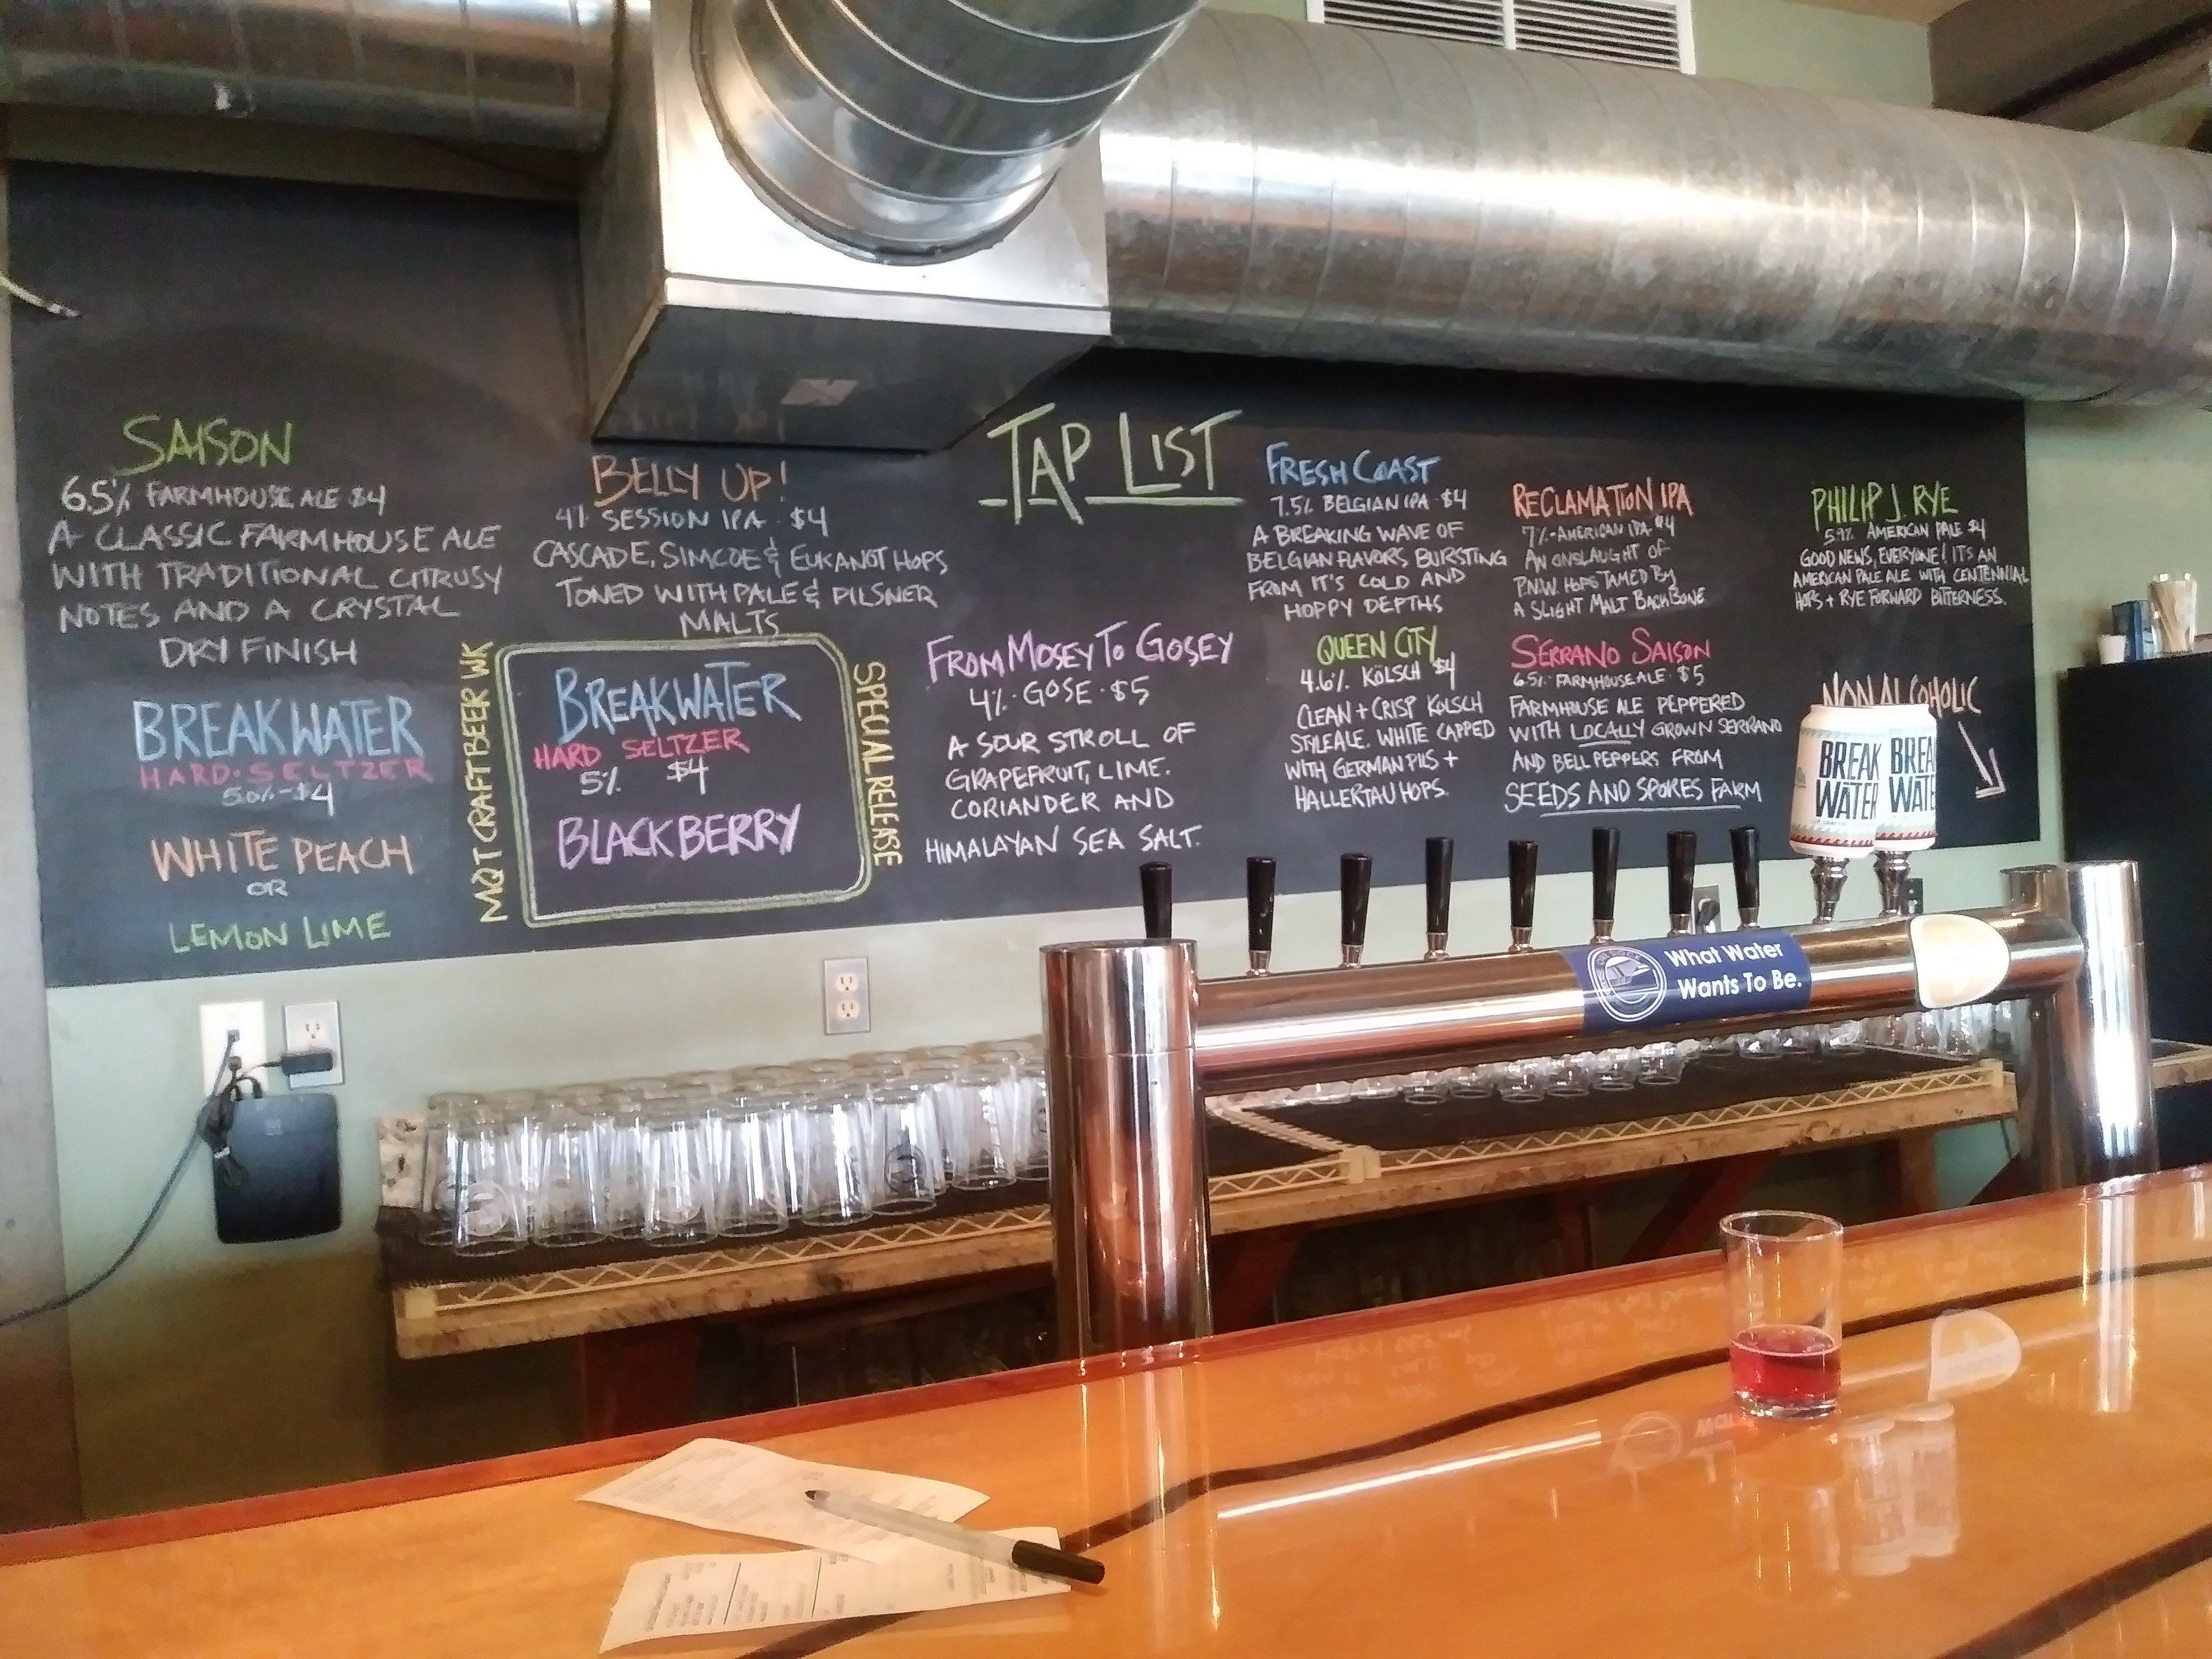 TAP LIST
SAISON
6.5% FARMHOUSE ALE $4
A CLASSIC FARMHOUSE ALE
WITH TRADITIONAL CITRUSY
NOTES AND A CRYSTAL
DRY FINISH
BREAKWATER
HARD·SELTZER
5.0%-$4
WHITE PEACH
OR
LEMON LIME
BELLY UP!
4% SESSION IPA · $4
CASCADE, SIMCOE & EUKANOT HOPS
TONED WITH PALE & PILSNER
MALTS
MQT CRAFT BEER WK
BREAKWATER
HARD SELTZER
5% $4
BLACKBERRY
SPECIAL RELEASE
FROM MOSEY TO GOSEY
4% · GOSE · $5
A SOUR STROLL OF
GRAPEFRUIT, LIME.
CORIANDER AND
HIMALAYAN SEA SALT.
FRESH COAST
7.5% BELGIAN IPA · $4
A BREAKING WAVE OF
BELGIAN FLAVORS BURSTING
FROM IT'S COLD AND
HOPPY DEPTHS
QUEEN CITY
4.6% KÖLSCH $4
CLEAN + CRISP KOLSCH
STYLE ALE. WHITE CAPPED
WITH GERMAN PILS +
HALLERTAU HOPS.
RECLAMATION IPA
7%-AMERICAN IPA $4
AN ONSLAUGHT OF
P.N.W. HOPS TAMED BY
A SLIGHT MALT BACKBONE
SERRANO SAISON
6.5% FARMHOUSE ALE · $5
FARMHOUSE ALE PEPPERED
WITH LOCALLY GROWN SERRANO
AND BELL PEPPERS FROM
SEEDS AND SPORES FARM
PHILIP J. RYE
5.9% AMERICAN PALE $4
GOOD NEWS, EVERYONE! IT'S AN
AMERICAN PALE ALE WITH CENTENNIAL
HOPS + RYE FORWARD BITTERNESS.
NON ALCOHOLIC
BREAK
WATER
BREA
WATE
What Water
Wants To Be.